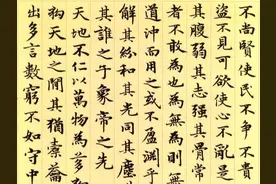 不尚賢使民不爭不貴
盜不見可欲使心不亂是
其腹弱其志强其骨常
者不敢為也為無為則無
道沖而用之或不盈淵乎
解其紛和其光同其塵
其誰之子象帝之先
天地不仁以萬物為芻
狗天地之間其猶橐籥
出多言數窮不如守中